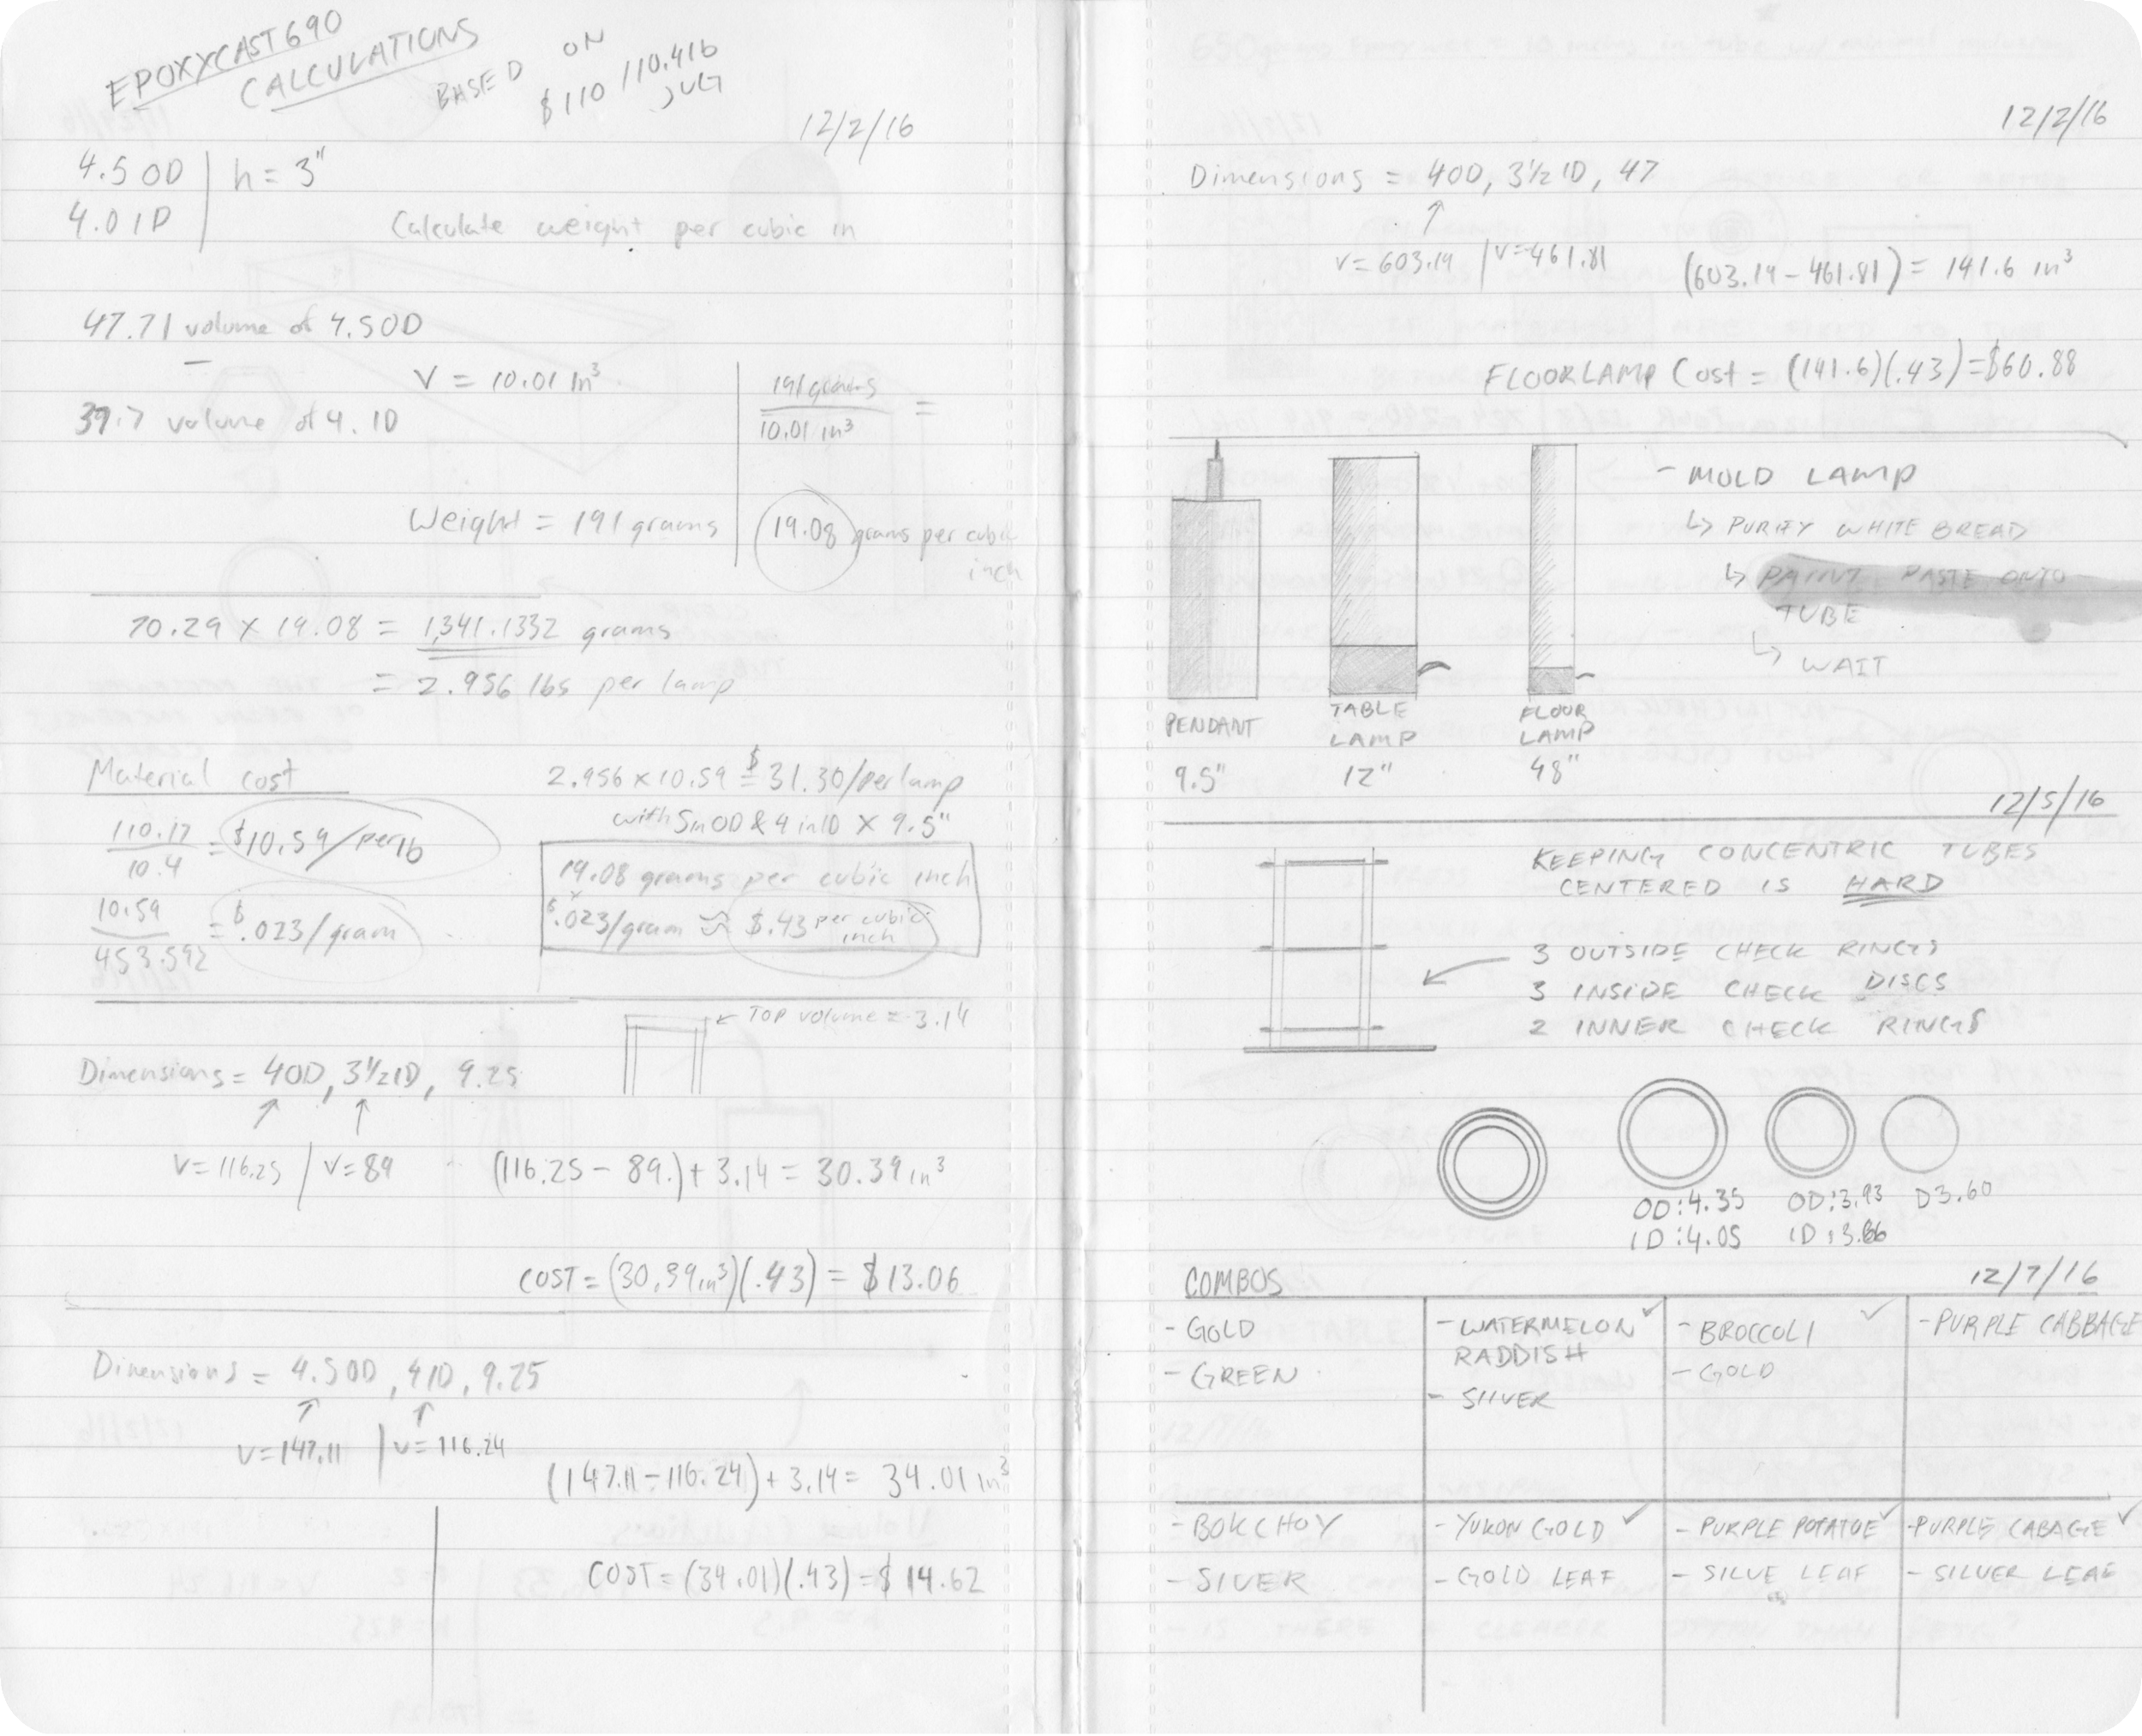 EPOXYCAST 690
CALCULATIONS
BASED ON
$110/10.4lb
JUG
12/2/16
4.5 OD | h = 3"
4.0 ID
Calculate weight per cubic in
47.71 volume of 4.5OD
—
V = 10.01 in³
39.7 volume of 4.1D
191 grams
10.01 in³ =
Weight = 191 grams
19.08 grams per cubic
inch
70.29 x 19.08 = 1,341.1332 grams
= 2.956 lbs per lamp
Material cost
110.17
10.4 = $10.59/per lb
10.59
453.592 = $.023/gram
2.956 x 10.59 = $31.30/per lamp
with 5in OD & 4 in ID x 9.5"
19.08 grams per cubic inch
x
$.023/gram ≈ $.43 per cubic
inch
← TOP volume = 3.14
Dimensions = 4OD, 3½ID, 9.25
V = 116.25 / V = 89
(116.25 - 89.) + 3.14 = 30.39 in³
COST = (30.39in³)(.43) = $13.06
Dimensions = 4.5OD, 4ID, 9.25
V = 147.11 | V = 116.24
(147.11 - 116.24) + 3.14 = 34.01 in³
COST = (34.01)(.43) = $14.62
12/2/16
Dimensions = 4OD, 3½ ID, 47
V = 603.19 | V = 461.81
(603.19 - 461.81) = 141.6 in³
FLOORLAMP Cost = (141.6)(.43) = $60.88
- MOLD LAMP
↳ PURIFY WHITE BREAD
↳ PAINT PASTE ONTO
TUBE
↳ WAIT
PENDANT
9.5"
TABLE
LAMP
12"
FLOOR
LAMP
48"
12/5/16
KEEPING CONCENTRIC TUBES
CENTERED IS HARD
3 OUTSIDE CHECK RINGS
3 INSIDE CHECK DISCS
2 INNER CHECK RINGS
OD: 4.35
ID: 4.05
OD: 3.93
ID: 3.66
D3.60
COMBOS
12/7/16
- GOLD
- GREEN
- WATERMELON ✓
RADDISH
- SIlVER
- BROCCOLI ✓
- GOLD
- PURPLE CABBAGE
- BOKCHOY
- SIVER
- YUKON GOLD ✓
- GOLD LEAF
- PURPLE POTATOE ✓
- SILVE LEAF
- PURPLE CABAGE ✓
- SILVER LEAF